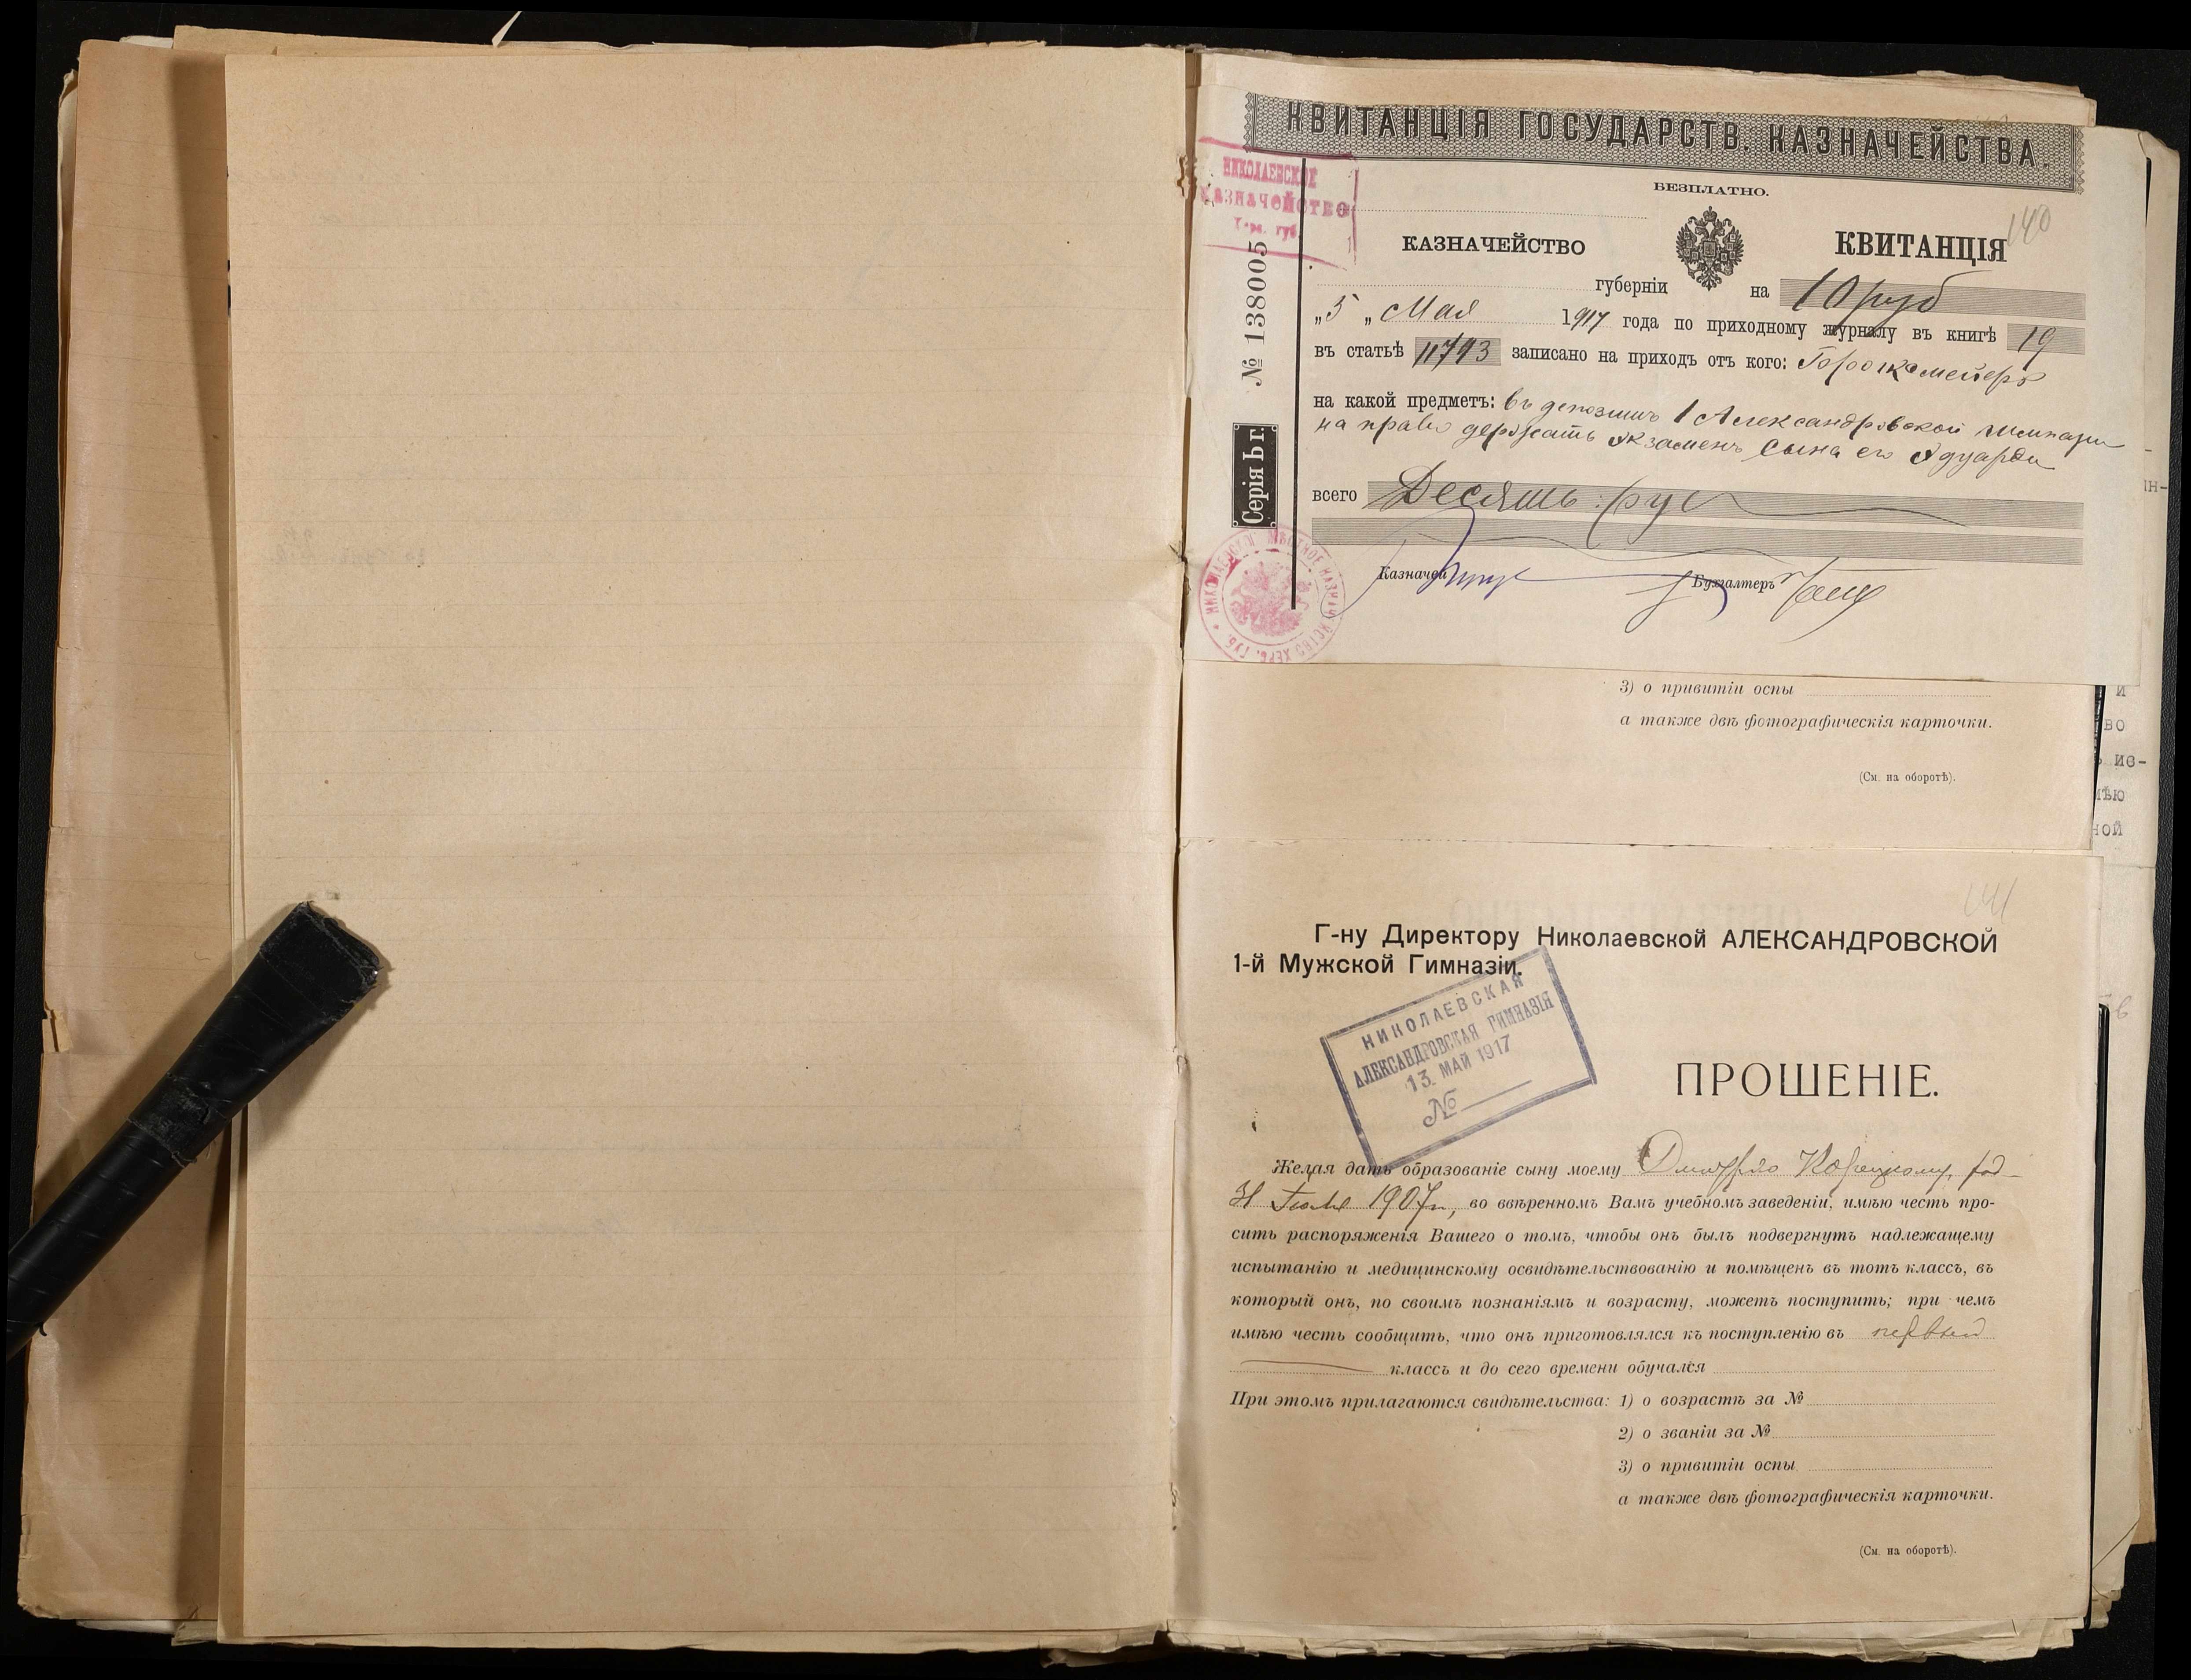 КВИТАНЦІЯ ГОСУДАРСТВ. КАЗНАЧЕЙСТВА.
БЕЗПЛАТНО.
НИКОЛАЕВСКОЕ
Казначейство
Хер. губ.
140
КАЗНАЧЕЙСТВО
КВИТАНЦІЯ
губерніи
на 10 руб
„5„ Мая 1917 года по приходному журналу въ книгѣ 19
въ статьѣ 11793 записано на приходъ отъ кого:
на какой предметъ: въ депозитъ 1 Александровской гимназіи
на право держать экзаменъ сына его Эдуарда
всего Десять руб
Казначей
Бухгалтеръ
№ 138005
Серія Ьг.
НИКОЛАЕВСКОЕ УѢЗДНОЕ КАЗНАЧЕЙСТВО ХЕРС. ГУБ.
3) о привитіи оспы
а также двѣ фотографическія карточки.
(См. на оборотѣ).
141
Г-ну Директору Николаевской АЛЕКСАНДРОВСКОЙ
1-й Мужской Гимназіи.
НИКОЛАЕВСКАЯ
АЛЕКСАНДРОВСКАЯ ГИМНАЗІЯ
13. МАЙ 1917
№
ПРОШЕНІЕ.
Желая дать образованіе сыну моему Дмитрію Корецкому, род
1907 г., во ввѣренномъ Вамъ учебномъ заведеніи, имѣю честь про-
сить распоряженія Вашего о томъ, чтобы онъ былъ подвергнутъ надлежащему
испытанію и медицинскому освидѣтельствованію и помѣщенъ въ тотъ классъ, въ
который онъ, по своимъ познаніямъ и возрасту, можетъ поступить; при чемъ
имѣю честь сообщить, что онъ приготовлялся къ поступленію въ первый
классъ и до сего времени обучался
При этомъ прилагаются свидѣтельства: 1) о возрастѣ за №
2) о званіи за №
3) о привитіи оспы
а также двѣ фотографическія карточки.
(См. на оборотѣ).